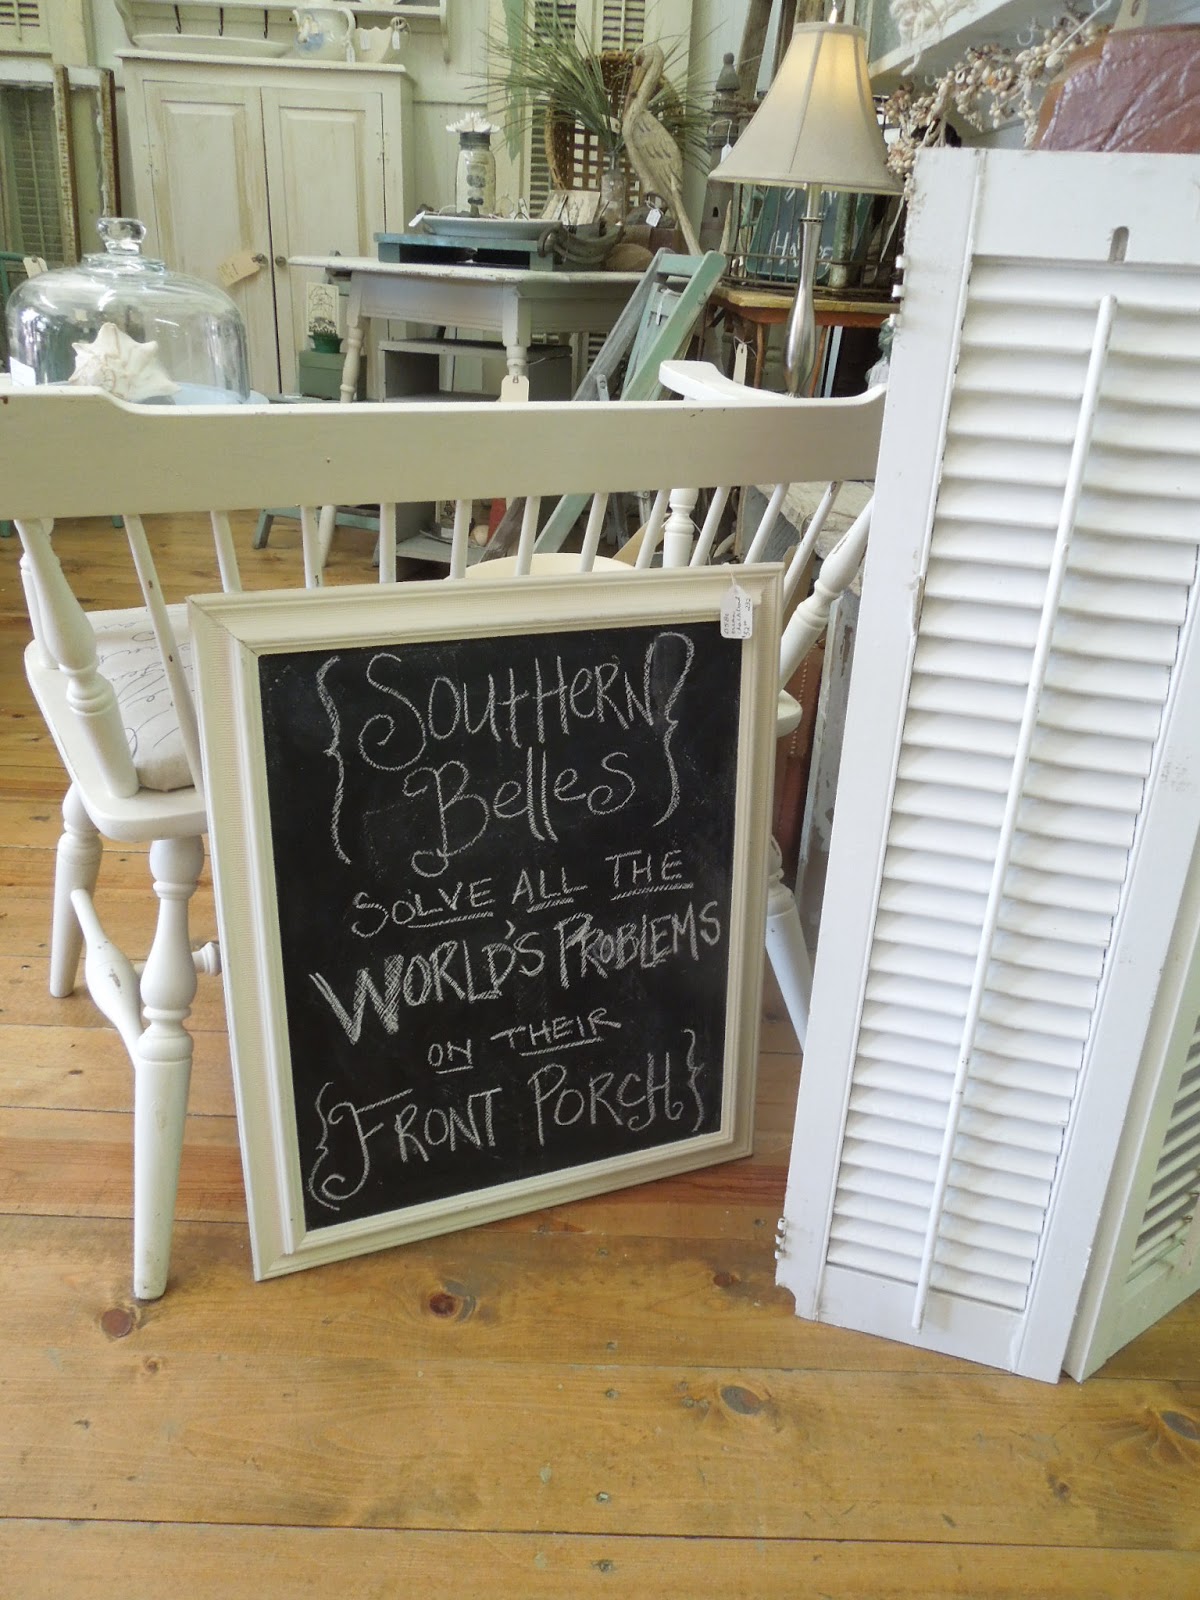 {Southern
Belles}
SOLVE ALL THE
WORLD'S PROBLEMS
ON THEIR
{FRONT PORCH}